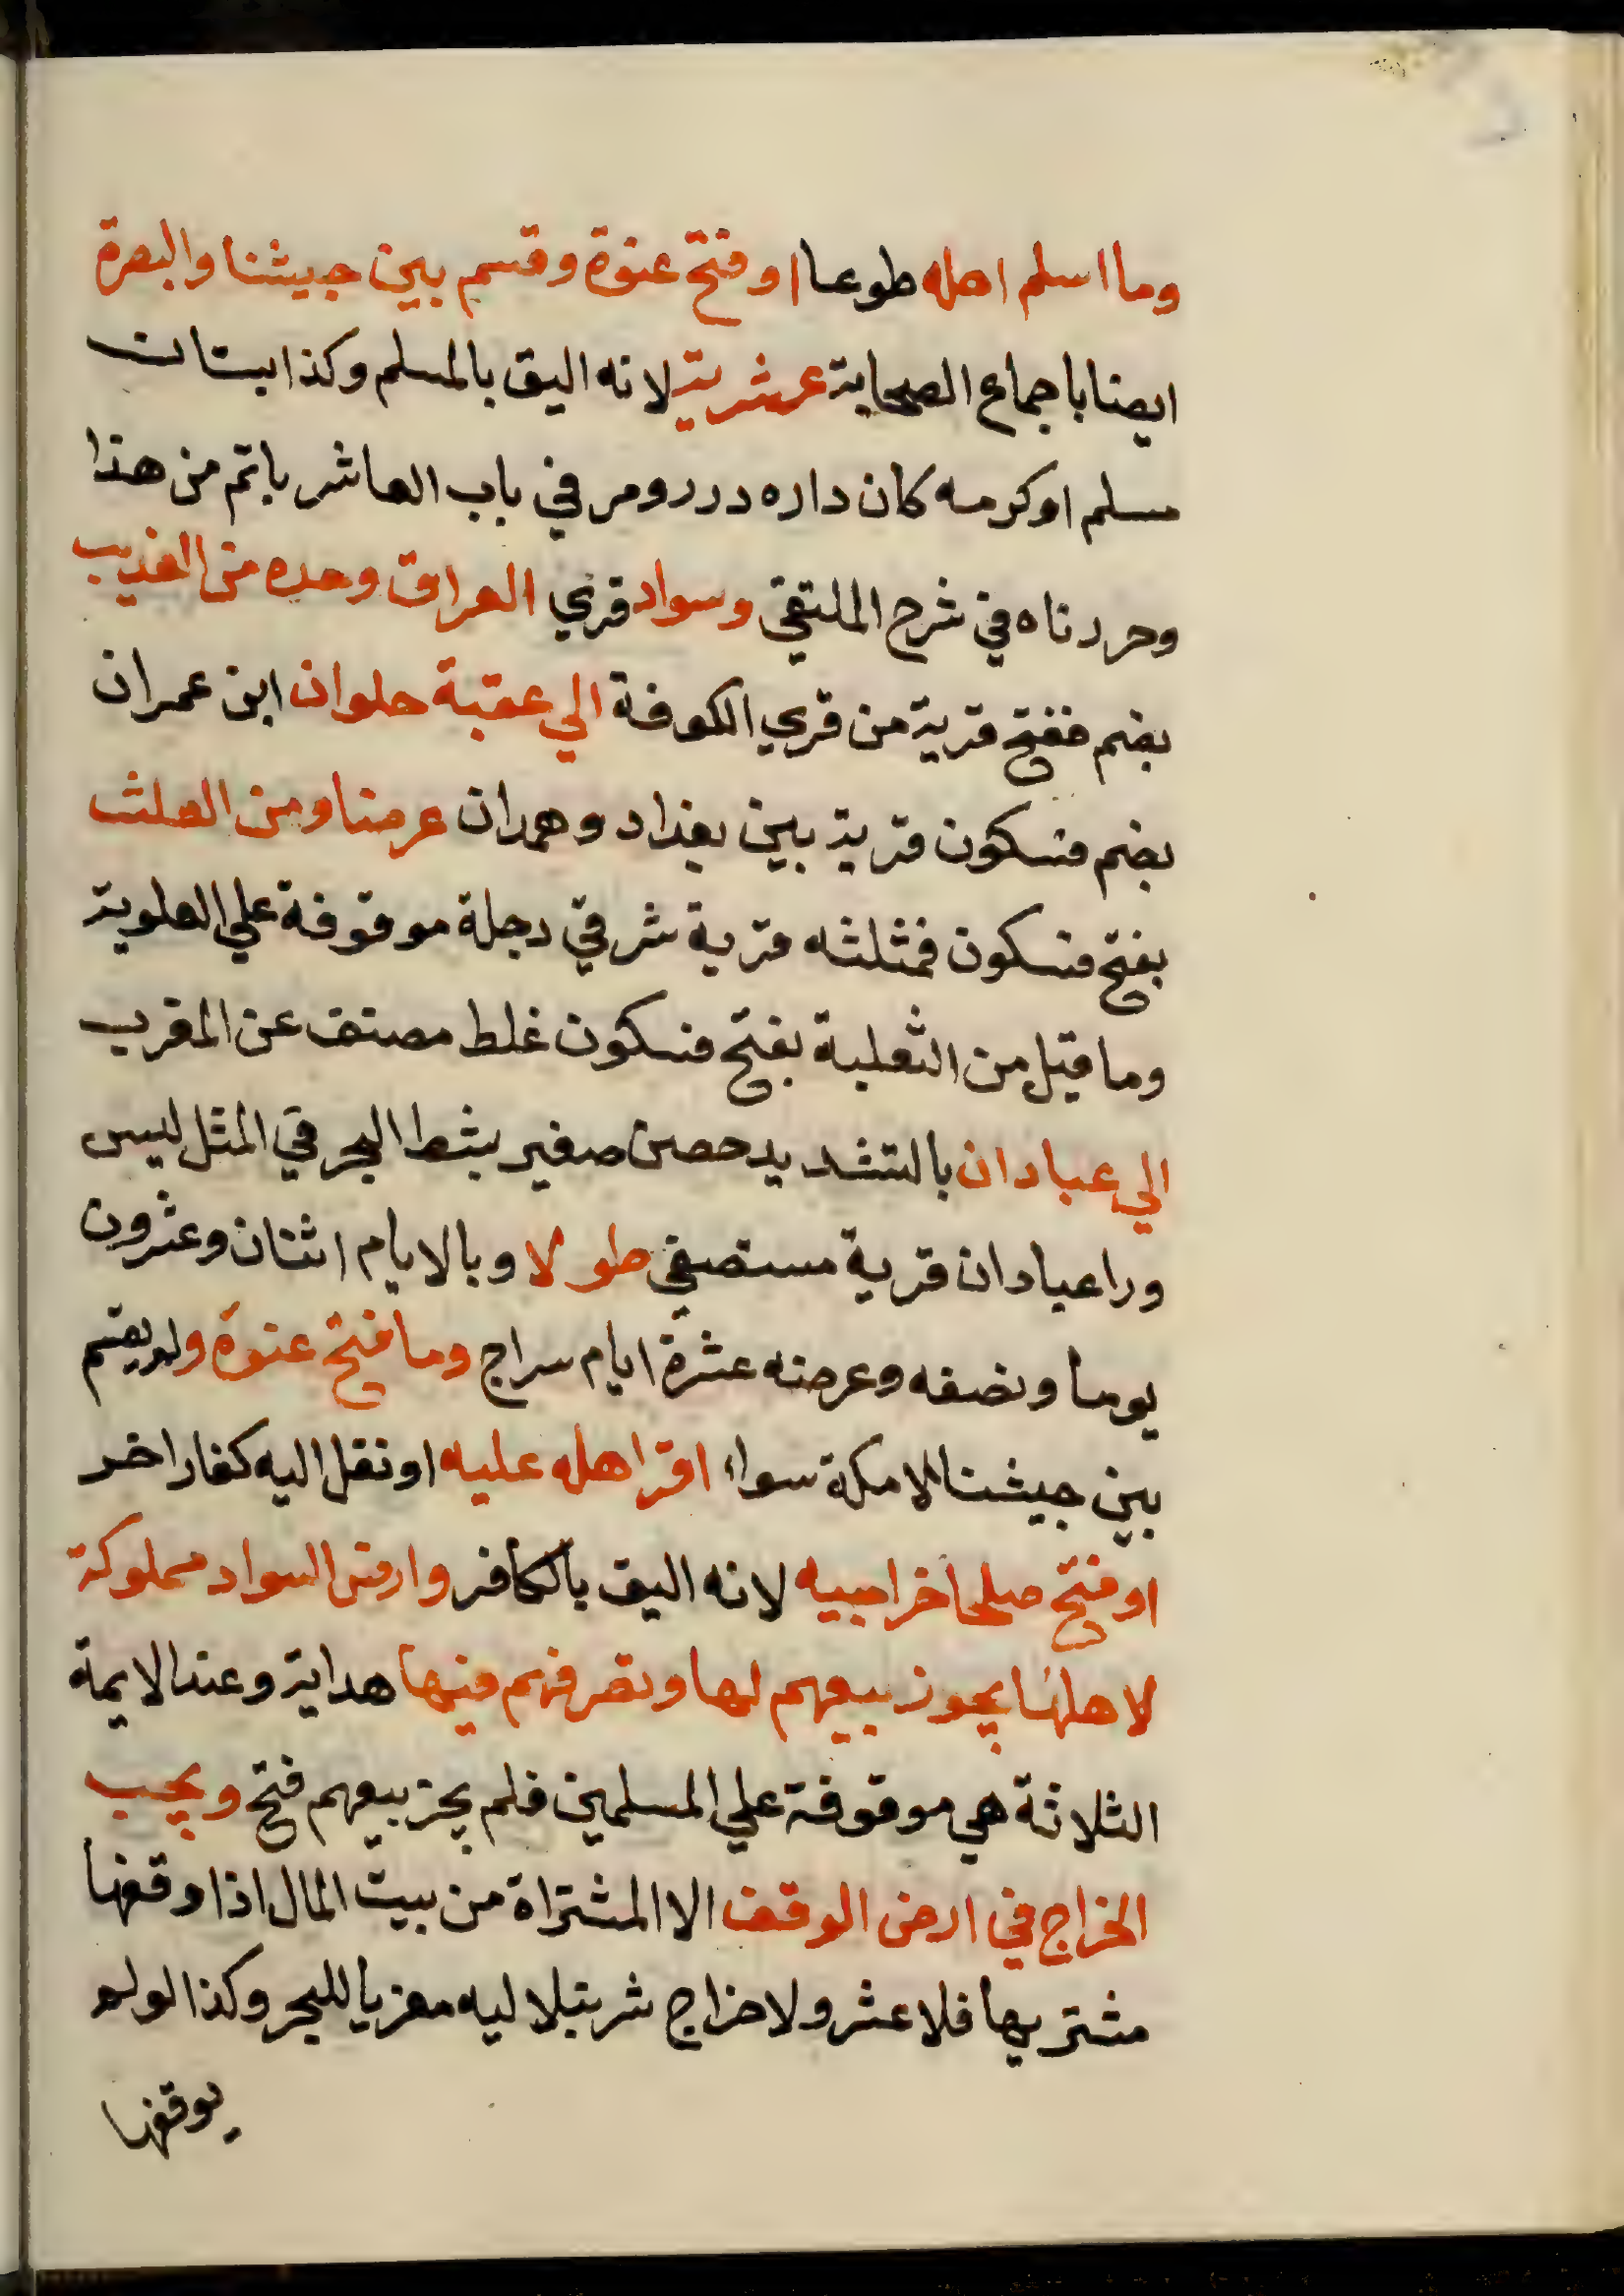 وما اسلم اهله طوعا او فتح عنوة وقسم بين جيشنا والبصرة
ايضا باجماع الصحابة عشرية لانه اليق بالمسلم وكذا بستان
مسلم او كرمه كان داره درر ومر في باب العاشر باتم من هذا
وحررناه في شرح الملتقي وسواد قري العراق وحده من العذيب
بضم ففتح قرية من قري الكوفة الي عقبة حلوان ابن عمران
بضم فسكون قرية بين بغداد وهمدان عرضا ومن العلث
بفتح فسكون فمثلثه قرية شرقي دجلة موقوفة علي العلوية
وما قيل من الثعلبة بفتح فسكون غلط مصنف عن المغرب
الي عبادان بالتشديد حصن صغير بشط البحر في المثل ليس
ورا عبادان قرية مستصفي طولا وبالايام اثنان وعشرون
يوما ونصفه وعرضه عشرة ايام سراج وما فتح عنوة ولم يقسم
بين جيشنا الا مكة سواء اقر اهله عليه او نقل اليه كفار اخر
او فتح صلحا خراجيه لانه اليق بالكافر وارض السواد مملوكة
لاهلها يجوز بيعهم لها وتصرفهم فيها هداية وعند الايمة
الثلاثة هي موقوفة علي المسلمين فلم يجز بيعهم فتح ويجب
الخراج في ارض الوقف الا المشتراة من بيت المال اذا وقفها
مشتريها فلا عشر ولا خراج شرنبلاليه معزيا للبحر وكذا لو لم
يوقفها